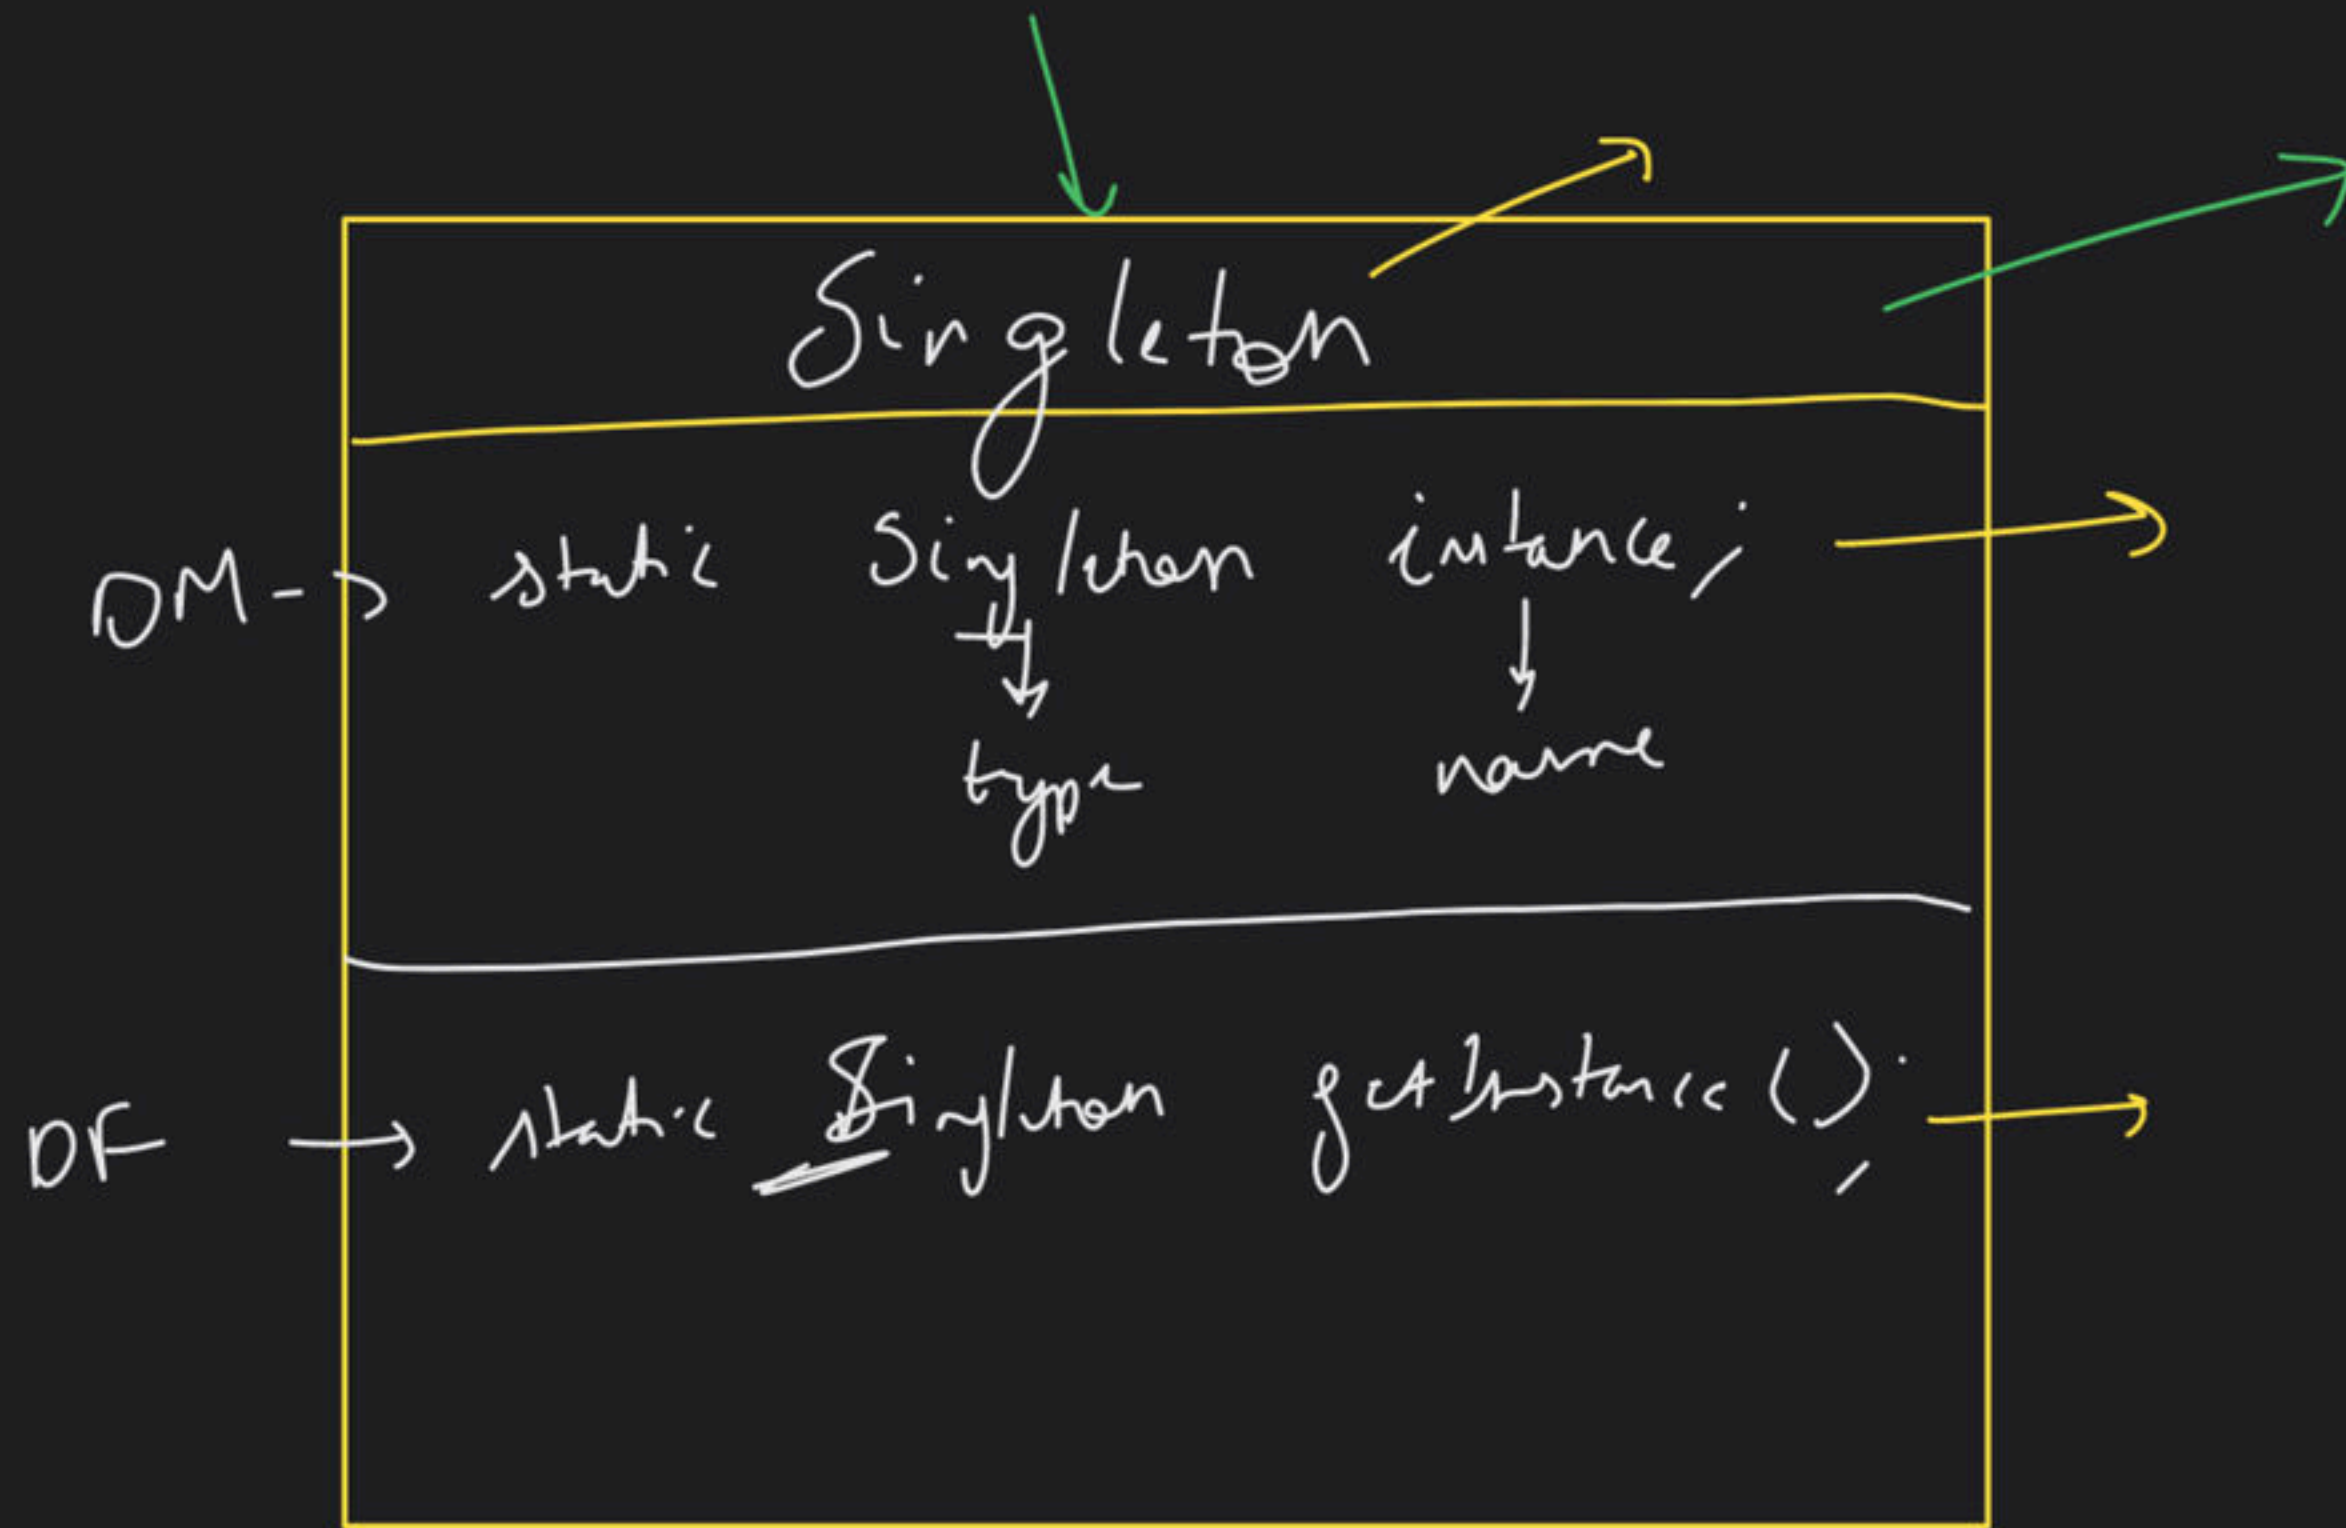 Singleton
DM -> static Singleton intance;
type name
DF -> static Singleton getInstance();